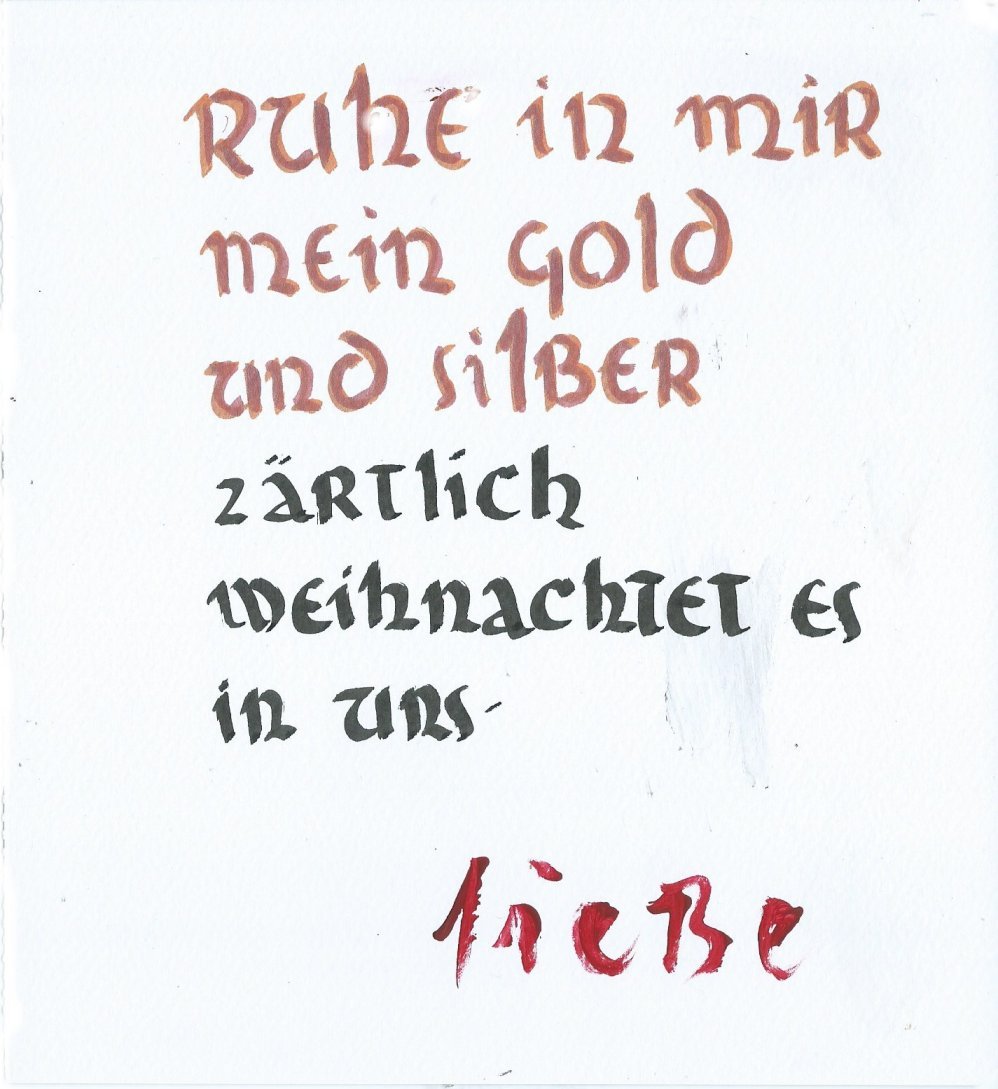 Ruhe in mir
mein Gold
und Silber
zärtlich
weihnachtet es
in uns-
Liebe